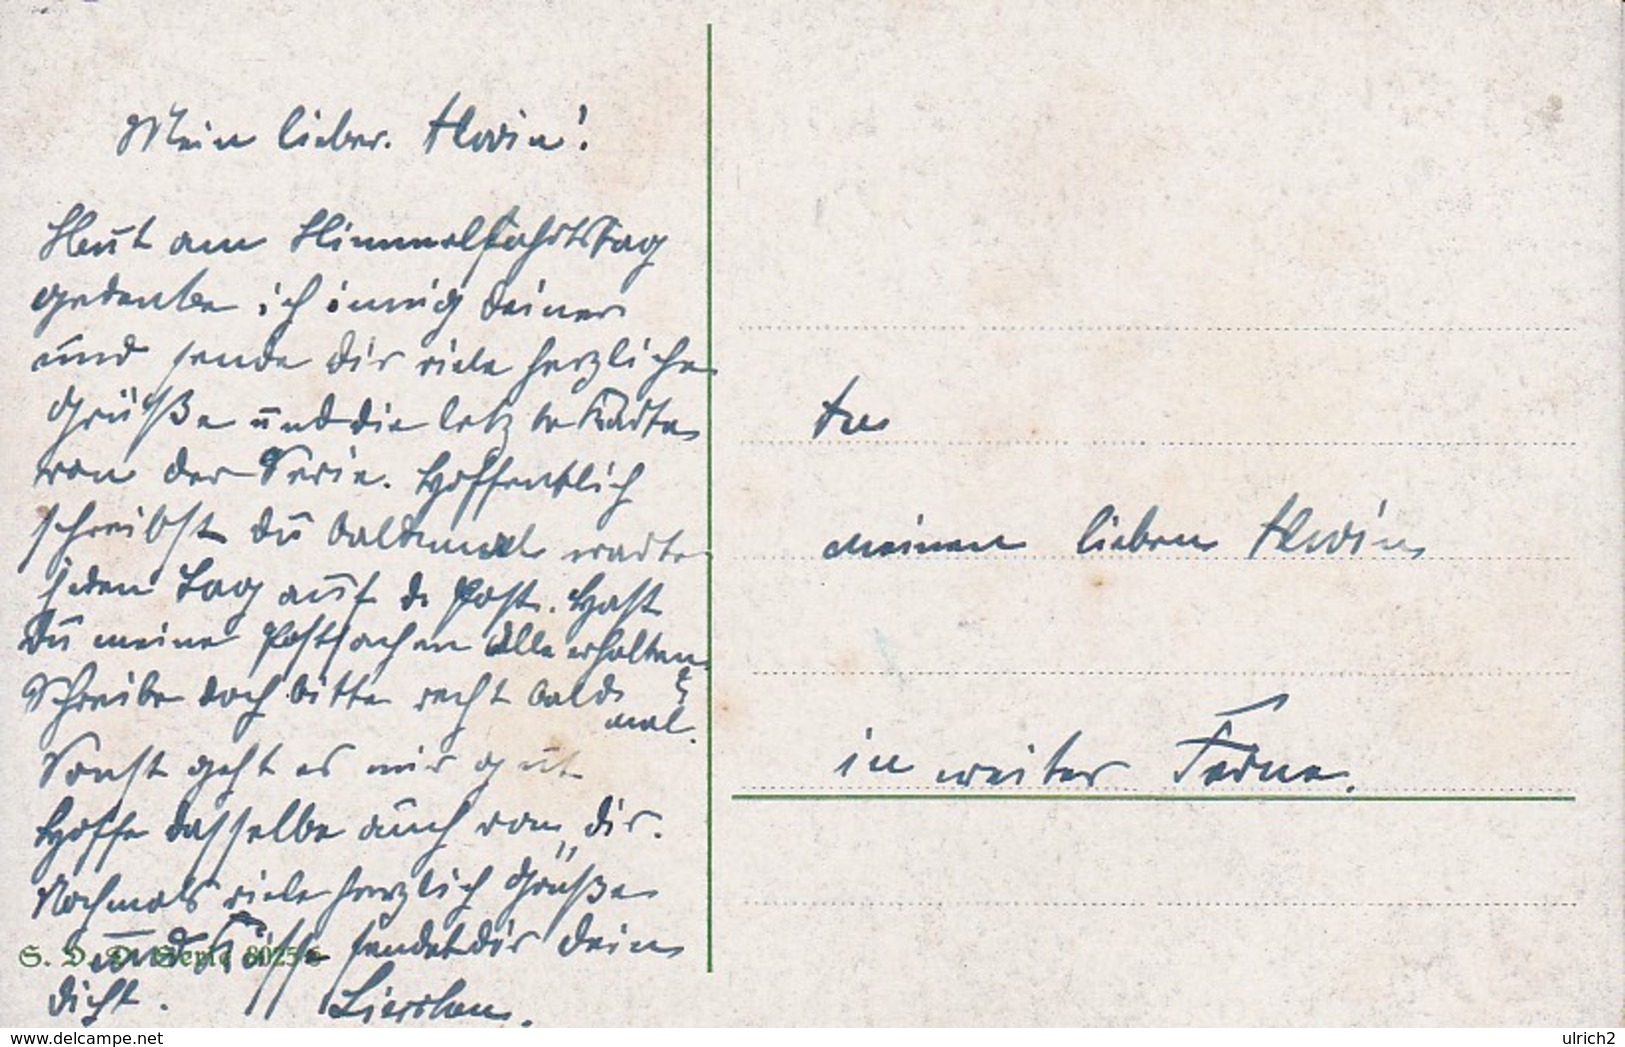 Mein lieber Alwin!
Heut am Himmelfahrtstag
gedenke ich innig deiner
und sende dir viele herzliche
Grüße und die letzte Karte
von der Serie. Hoffentlich
schreibst du bald mal warte
jeden Tag auf d. Post. Hast
Du meine Postsachen alle erhalten
Schreibe doch bitte recht bald
mal.
Sonst geht es mir gut
Hoffe dasselbe auch von dir.
Nochmals viele herzlich Grüße
und Küsse sendet dir dein
dicht.
S. V. D. Serie 8025/
An
meinen lieben Alwin
in weiter Ferne.
www.delcampe.net
ulrich2